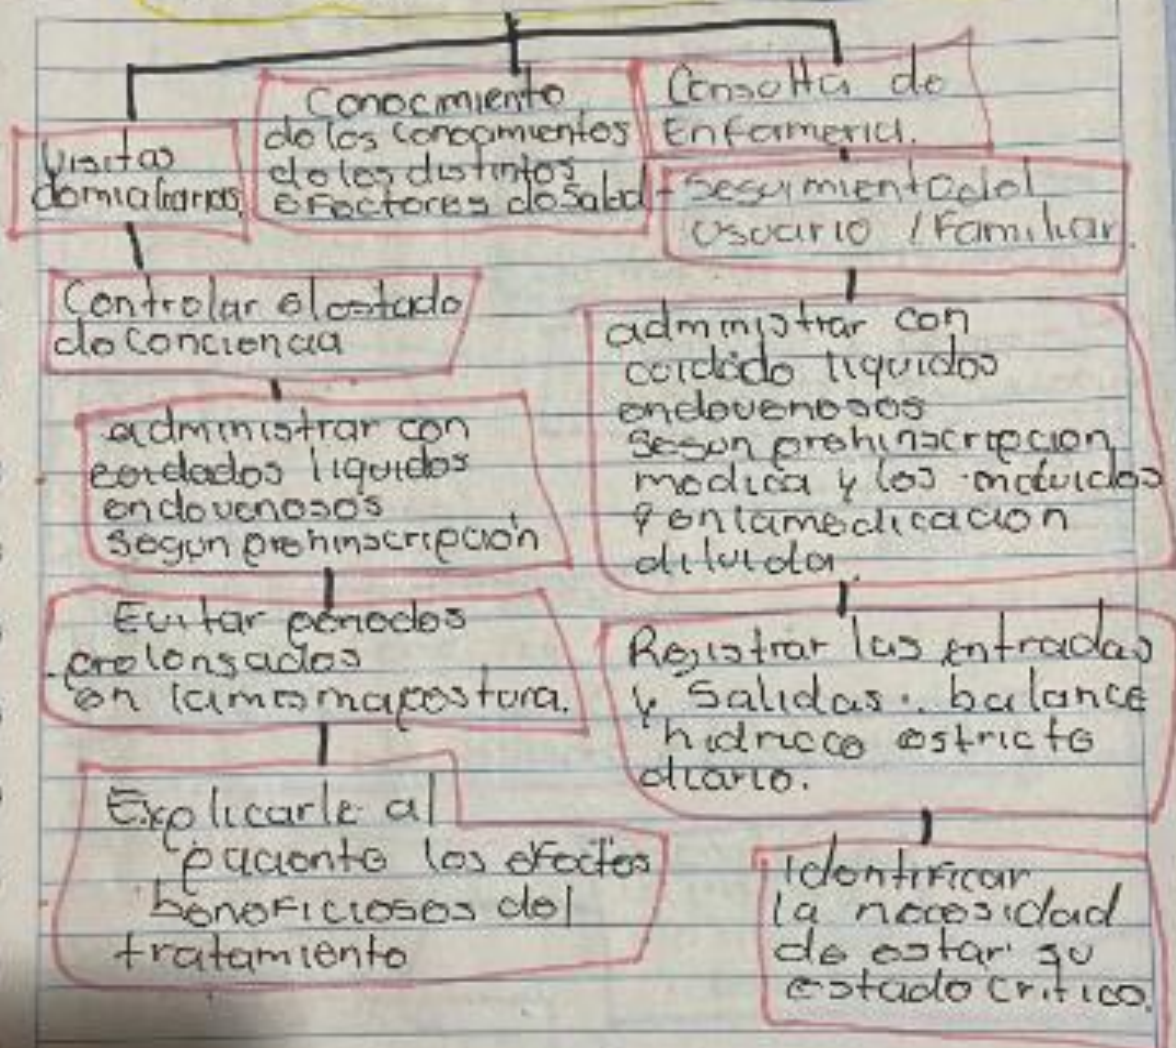 Visitas
domiciliarias.
Conocimiento
de los conocimientos
de los distintos
efectores de Salud
Consolta de
Enfermeria.
- Seguimiento del
usuario / Familiar.
Controlar el estado
de Conciencia
administrar con
coidados liquidos
endovenosos
Segun prehinscripción
Evitar periodos
prolongados
en la misma postura.
Explicarle al
paciente los efectos
beneficiosos del
tratamiento
administrar con
coidado liquidos
endovenosos
Segun prehinscripcion
medica y los incluidos
en la medicacion
diluida.
Registrar las entradas
y Salidas. balance
hidrico estricto
diario.
Identificar
la necesidad
de estar su
estado critico.